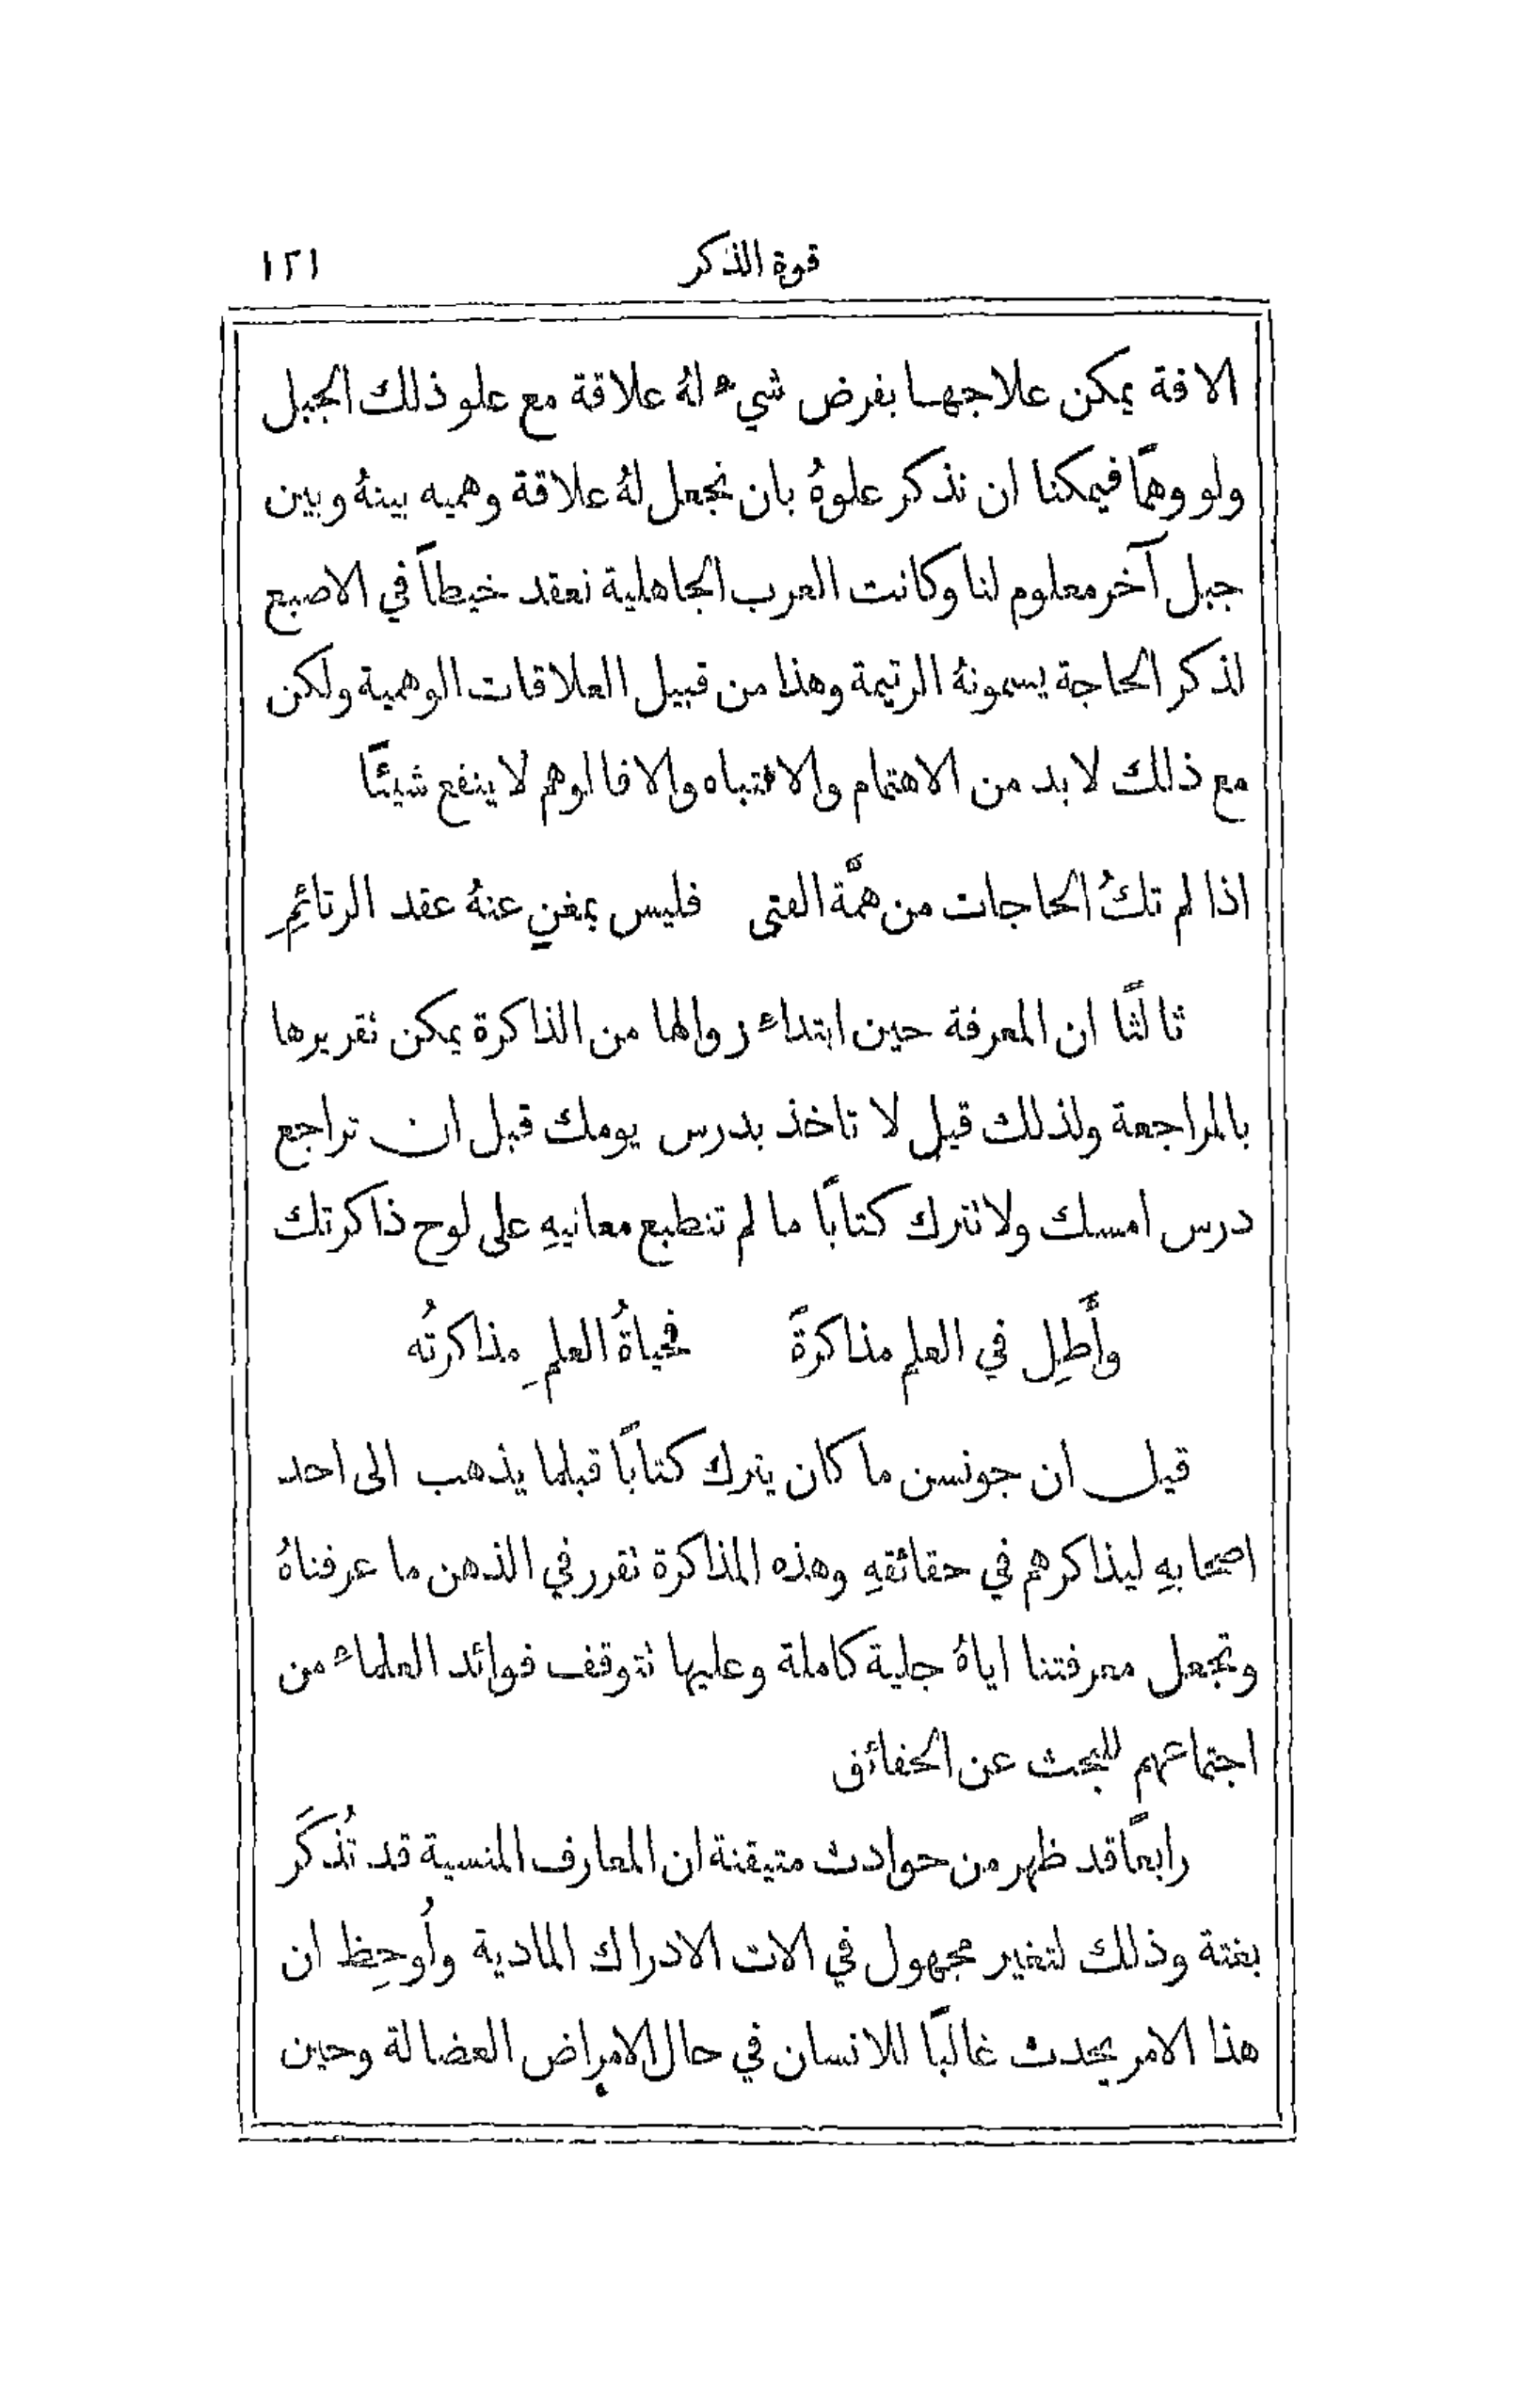 قوة الذكر ١٢١
الافة يمكن علاجها بفرض شيء لهُ علاقة مع علو ذلك الجبل
ولو وهمًا فيمكنا ان نذكر علوهُ بان نجعل لهُ علاقة وهميه بينهُ وبين
جبل آخر معلوم لنا وكانت العرب الجاهلية تعقد خيطاً في الاصبع
لذكر الحاجة يسمونهُ الرتيمة وهذا من قبيل العلاقات الوهمية ولكن
مع ذلك لا بد من الاهتمام والانتباه والا فالوهم لا ينفع شيئًا
اذا لم تكُ الحاجات من همَّة الفتى فليس بمغنٍ عنهُ عقد الرتائِمِ
ثالثًا ان المعرفة حين ابتداء زوالها من الذاكرة يمكن تقريرها
بالمراجعة ولذلك قيل لا تاخذ بدرس يومك قبل ان تراجع
درس امسك ولا تترك كتابًا ما لم تنطبع معانيهِ على لوح ذاكرتك
وأَطلِ في العلم مذاكرةً فحياةُ العلمِ مذاكرتُه
قيل ان جونسن ما كان يترك كتابًا قبلما يذهب الى احد
اصحابهِ ليذاكرهم في حقائقهِ وهذه المذاكرة تقرر في الذهن ما عرفناهُ
وتجعل معرفتنا اياهُ جلية كاملة وعليها تتوقف فوائد العلماء من
اجتماعهم للبحث عن الحقائق
رابعًا قد ظهر من حوادث متيقنة ان المعارف المنسية قد تُذكَر
بغتة وذلك لتغير مجهول في الات الادراك المادية وأُوحِظ ان
هذا الامر يحدث غالبًا للانسان في حال الامراض العضالة وحين